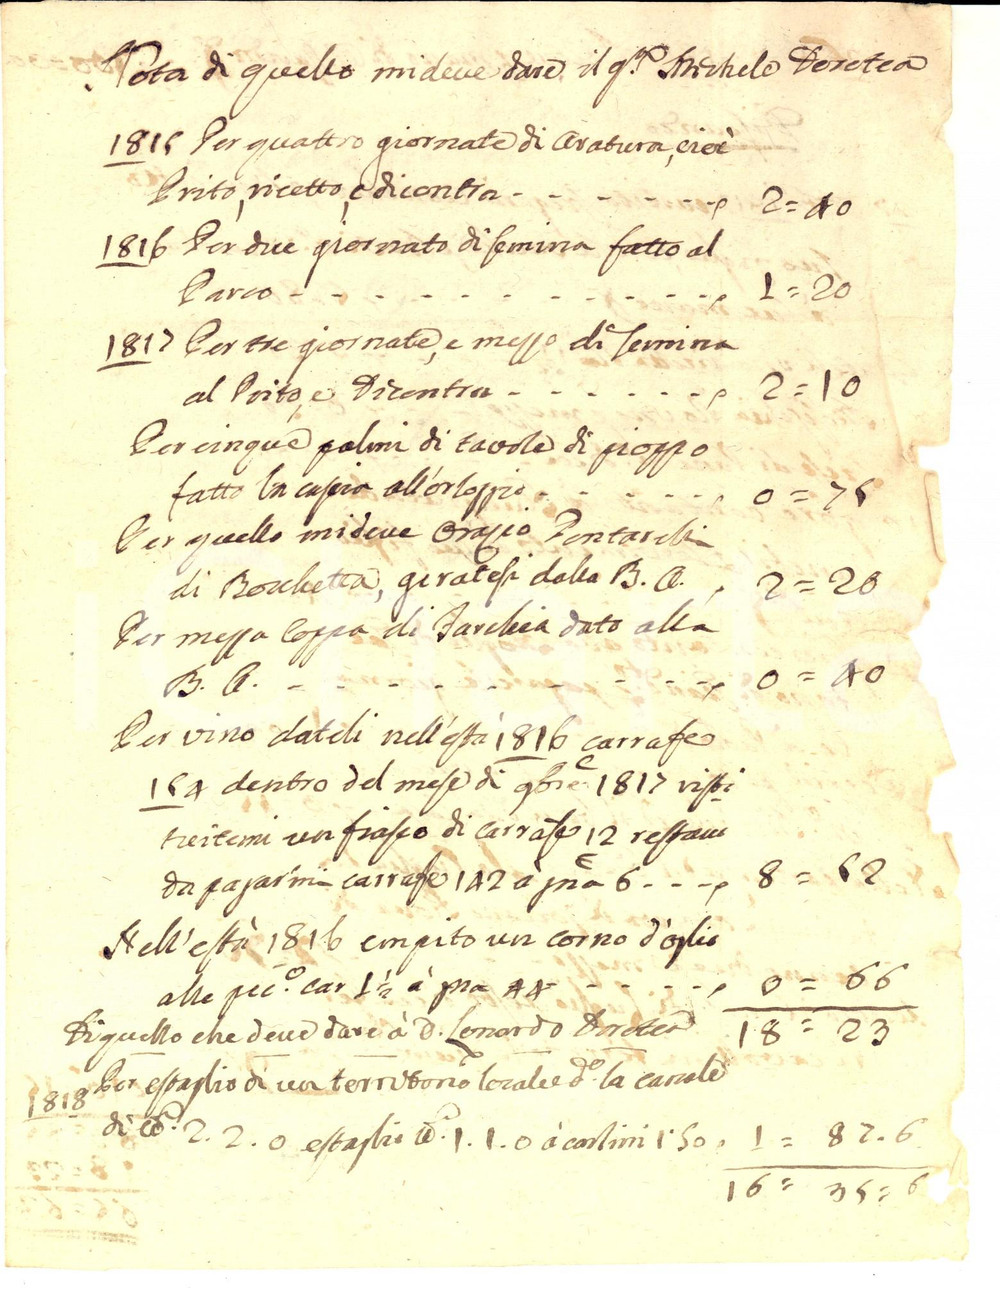 Nota di quello mi deve dare il q.m Michele Dorotea
1815 Per quattro giornate di aratura, cioè
Prito, ricetto, e dicontra - - - - - - - 2 = 40
1816 Per due giornato di semina fatto al
Parco - - - - - - - - - - - - 1 = 20
1817 Per tre giornate, e messo di semina
al Prito, e Dicontra - - - - - - 2 = 10
Per cinque palmi di tavole di pioppo
fatto la cascia all'orloggio - - - - - 0 = 75
Per quello mi deve Orazio Pontarelli
di Rocchetta, geratesi dalla B. A. 2 = 20
Per messa coppa di Farchia dato alla
B. A. - - - - - - - - - 0 = 40
Per vino dateli nell'està 1816 carrafe
154 dentro del mese di 9bre 1817 risti
tuitemi un fiasco di carrafe 12 restano
da pagarmi carrafe 142 à gna 6 - - - 8 = 52
Nell'està 1816 empito un corno d'oglio
alle pec.o car 1½ à gna 44 - - - - - 0 = 66
Di quello che deve dare à D. Lonardo Dorotea 18 = 23
1818 Per estaglio di un territorio locale d.o la canale
di 2. 2. 0 estaglio 1. 1. 0 à carlini 1:50 1 = 87. 6
16 = 35 = 6